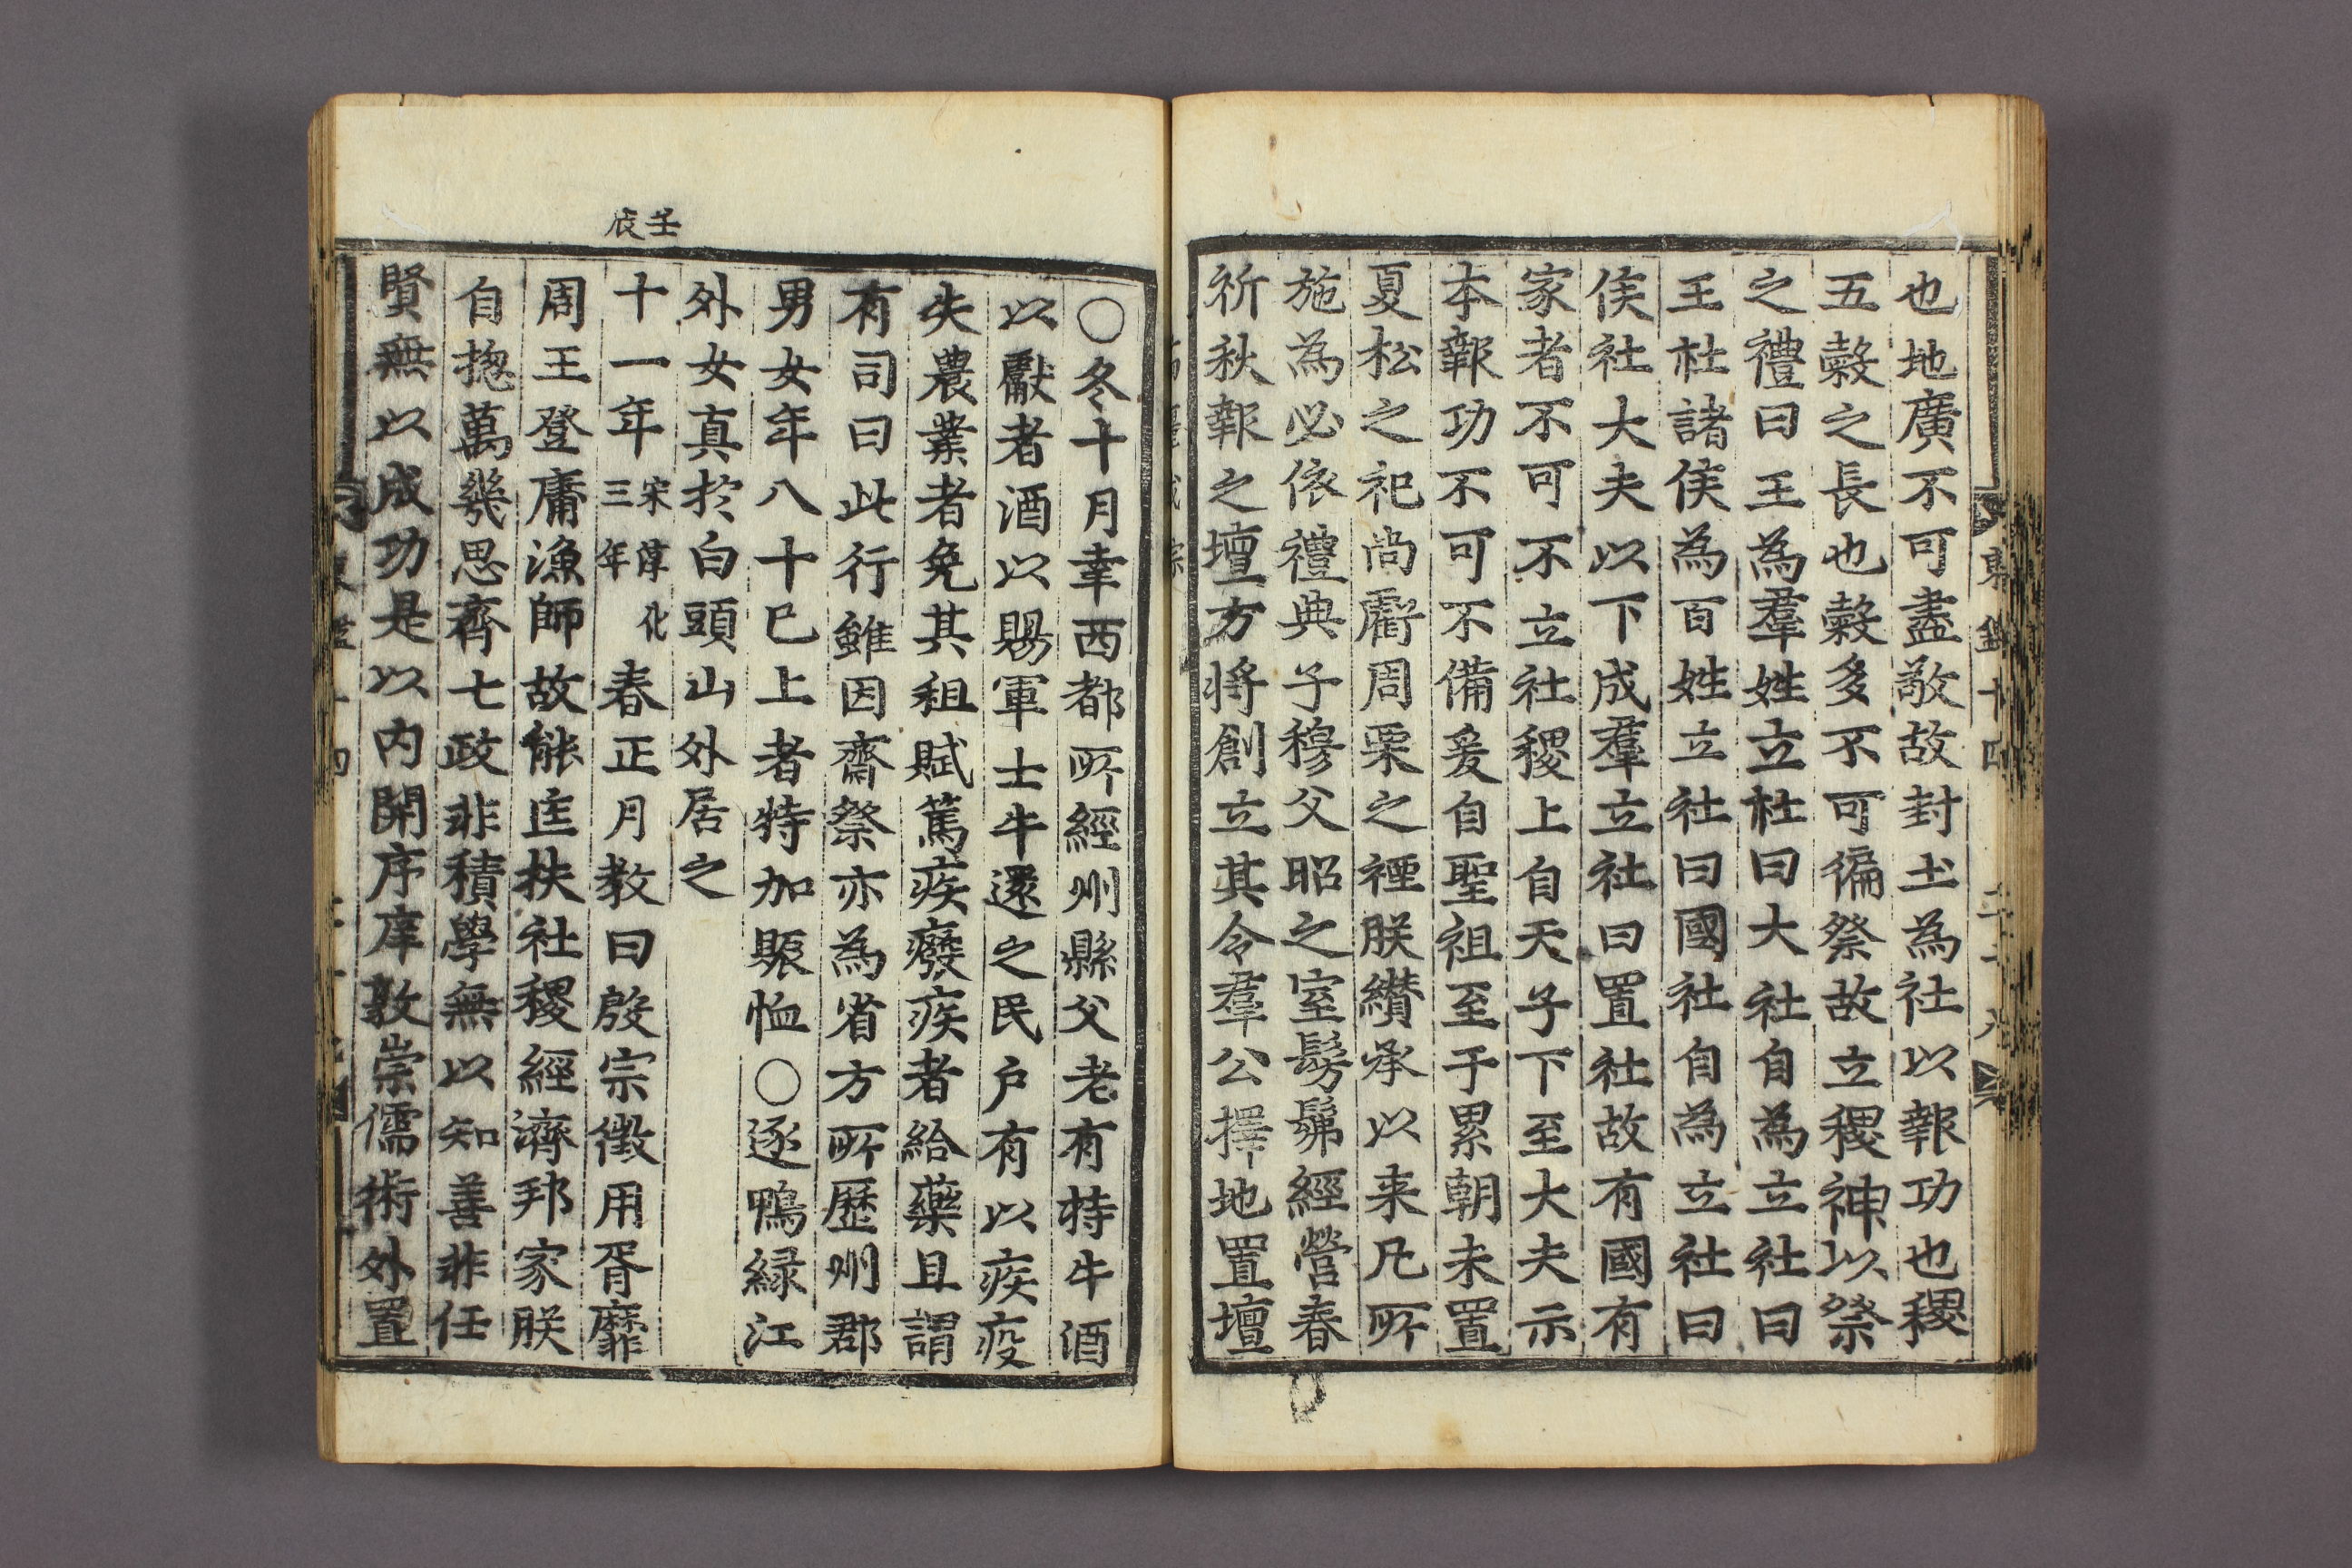 也地廣不可盡敬故封土為社以報功也稷
五糓之長也糓多不可徧祭故立稷神以祭
之禮曰王為羣姓立社曰大社自為立社曰
王社諸侯為百姓立社曰國社自為立社曰
侯社大夫以下成羣立社曰置社故有國有
家者不可不立社稷上自天子下至大夫示
本報功不可不備爰自聖祖至于累朝未置
夏松之祀尚虧周栗之禋朕纘承以来凡所
施為必依禮典子穆父昭之室髣髴經營春
祈秋報之壇方将創立其令羣公擇地置壇
○冬十月幸西都所經州縣父老有持牛酒
以獻者酒以賜軍士牛還之民户有以疾疫
失農業者免其租賦篤疾癈疾者給藥且謂
有司曰此行雖因齋祭亦為省方所歷州郡
男女年八十已上者特加賑恤○逐鴨綠江
外女真於白頭山外居之
壬辰
十一年宋淳化三年春正月教曰殷宗徵用胥靡
周王登庸漁師故能匡扶社稷經濟邦家朕
自揔萬幾思齊七政非積學無以知善非任
賢無以成功是以内開序庠敦崇儒術外置